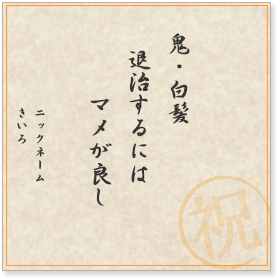 鬼・白髪
退治するには
マメが良し
ニックネーム
きいろ
祝